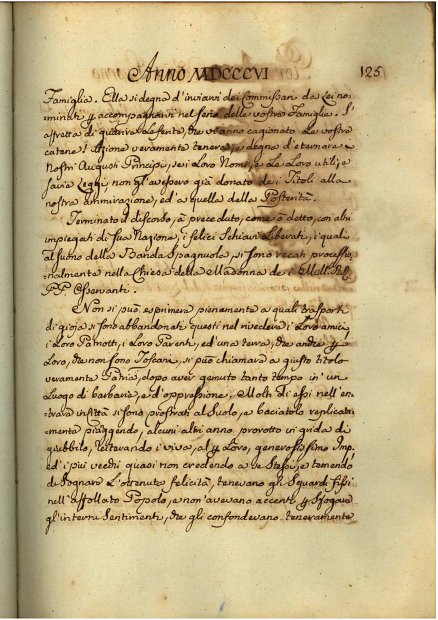 Anno MDCCCVI
125
Famiglia. Ella si degna d'inviarvi dei Commissari da Lei no:
:minati p accompagnarvi nel seno delle vostre Famiglie. S'
affretta di guarire le ferite, che vi anno cagionato le vostre
catene! Azione veramente tenera, e degna d'eternare i
Nostri Augusti Principi, se i Loro Nomi, e le Loro utili, e
savie Leggi non gl'avessero già donato dei Titoli alla
nostra ammirazione, ed a quella della Posterità.
Terminato il discorso, à preceduto, come ò detto, con altri
impiegati di sua Nazione, i felici Schiavi Liberati, i quali
al suono della Banda Spagnuola, si sono recati processio:
:nalmente nella Chiesa della Madonna dei Molt. Re.
PP. Osservanti.
Non si può esprimere pienamente a quali trasporti
di gioja si sono abbandonati questi nel rivedere i Loro amici,
i Loro Patriotti, i Loro Parenti, ed una terra, che anche p
Loro, che non sono Toscani, si può chiamare a giusto titolo
veramente Patria, dopo aver gemuto tanto tempo in un
Luogo di barbarie, e d'oppressione. Molti di essi nell'en:
trare in Città si sono prostrati al Suolo, e baciatolo replicata:
:mente piangendo, alcuni altri anno prorotto in grida di
giubbilo, reiterando i viva, al p Loro, generosissimo Imp.
ed i più vecchi quasi non credendo a se Stessi, e temendo
di Sognare L'ottenuta felicità, tenevano gli Sguardi fissi
nell'affollato Popolo, e non avevano accenti p Sfogare
gl'interni Sentimenti, che gli confondevano teneramente